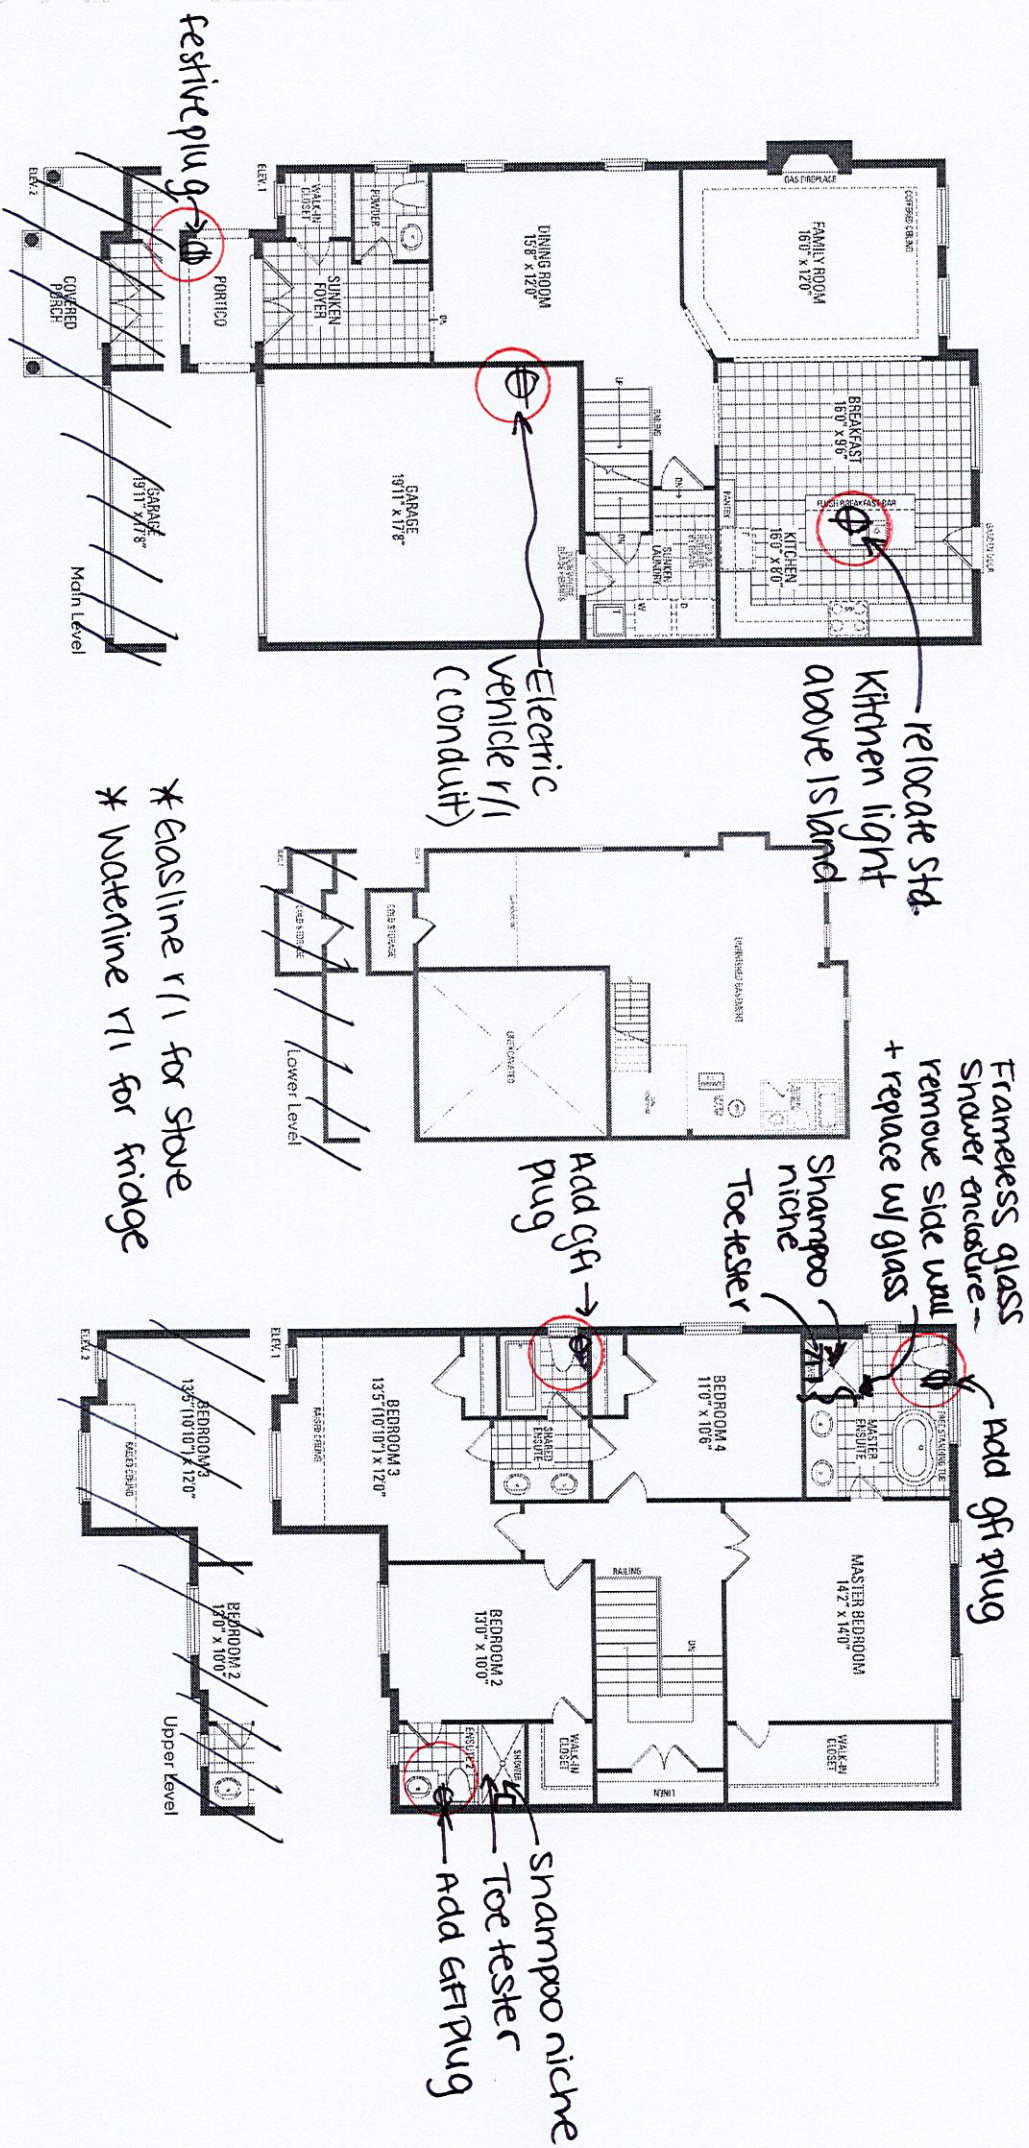 festive plug
ELEV. 2
COVERED
PORCH
GARAGE
19'11" x 17'8"
Main Level
PORTICO
ELEV. 1
WALK-IN
CLOSET
POWDER
SUNKEN
FOYER
DN
DINING ROOM
15'8" x 12'0"
GARAGE
19'11" x 17'8"
GAS FIREPLACE
COFFERED CEILING
FAMILY ROOM
16'0" x 12'0"
UP
RAILING
DN
DN
SUNKEN
LAUNDRY
W
D
PANTRY
BREAKFAST
16'0" x 9'6"
FLUSH BREAKFAST BAR
KITCHEN
16'0" x 8'0"
GARDEN DOOR
relocate Std.
Kitchen light
above island
Electric
Vehicle r/i
(conduit)
* Gasline r/i for Stove
* Waterline r/i for fridge
COLD STORAGE
COLD STORAGE
UNEXCAVATED
UNFINISHED BASEMENT
Lower Level
Frameless glass
Shower enclosure -
remove side wall
+ replace w/ glass
Shampoo
niche
Toe tester
Add gfi
plug
Add gfi plug
ELEV. 2
BEDROOM 3
13'5" (10'10") x 12'0"
RAISED CEILING
BEDROOM 2
13'0" x 10'0"
Upper Level
ELEV. 1
BEDROOM 3
13'5" (10'10") x 12'0"
RAISED CEILING
SHARED
ENSUITE
BEDROOM 4
11'0" x 10'6"
MASTER
ENSUITE
FREE STANDING TUB
MASTER BEDROOM
14'2" x 14'0"
WALK-IN
CLOSET
RAILING
DN
LINEN
BEDROOM 2
13'0" x 10'0"
WALK-IN
CLOSET
ENSUITE 2
SHOWER
Shampoo niche
Toe tester
Add GFI Plug